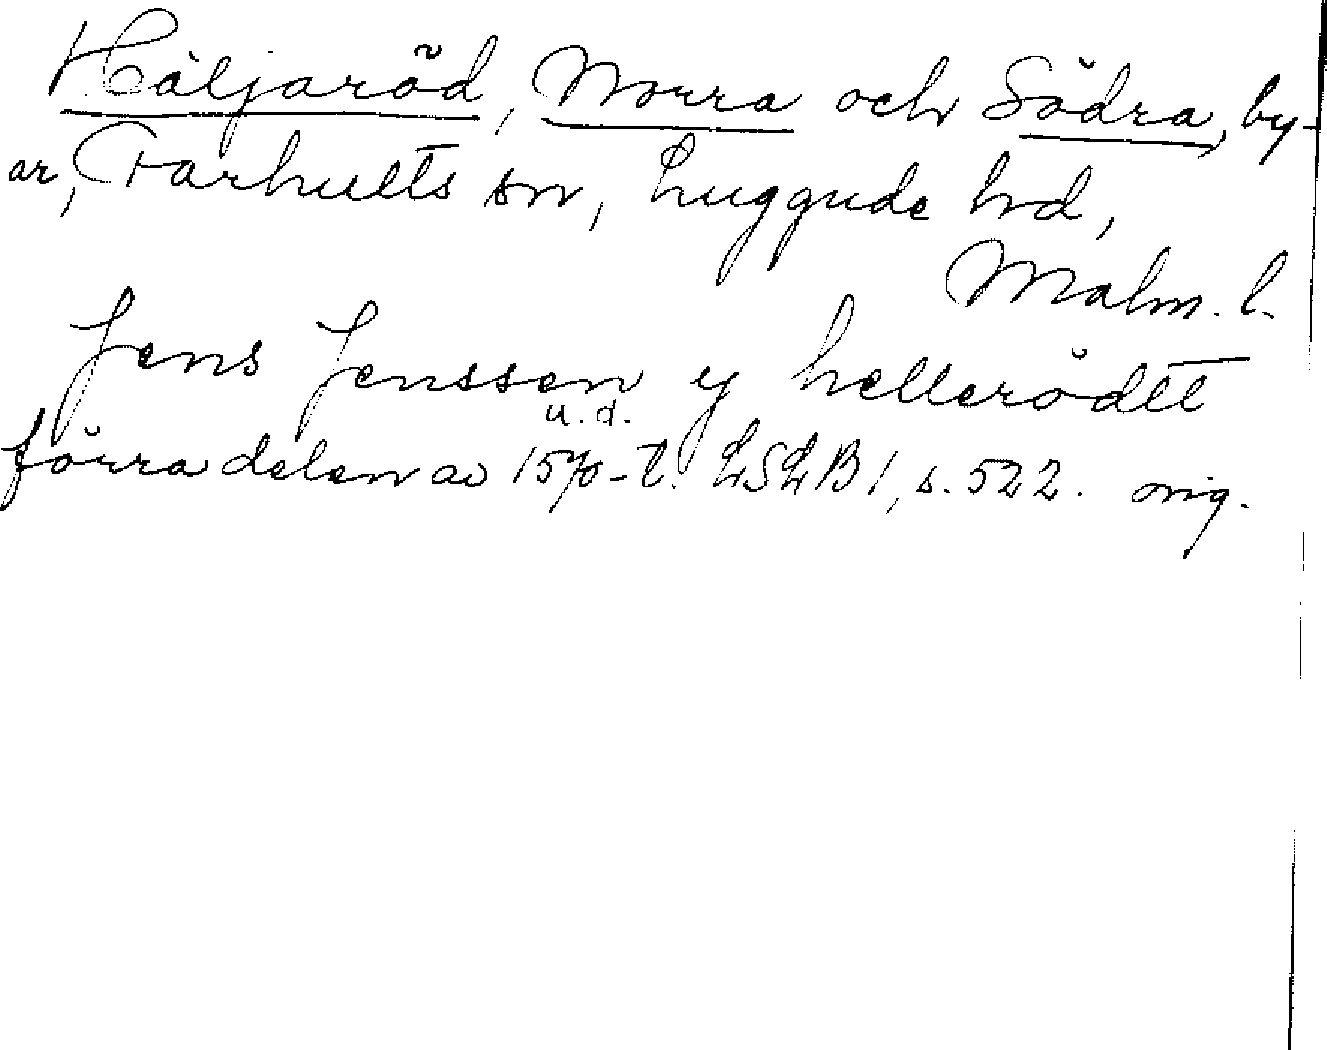 Häljaröd, Norra och Södra, by-
ar, Farhults sn, Luggude hd,
Malm. l.
Jens Jenssen y hellerødtt
u. d.
förra delen av 1570-t. LSLB 1, s. 522. orig.